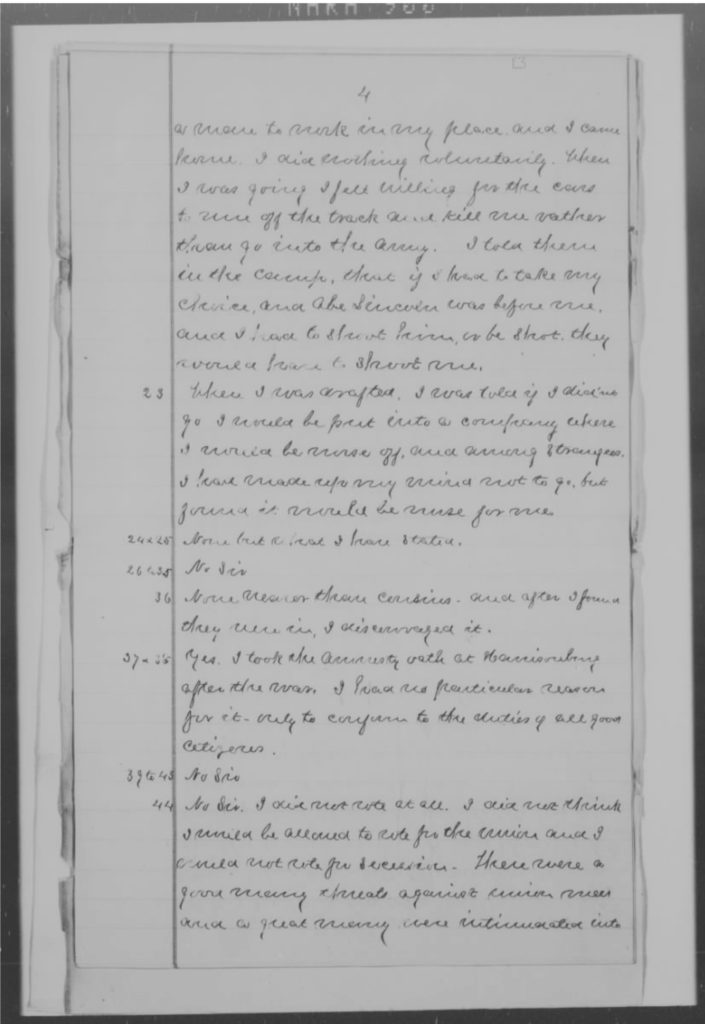 4
a man to work in my place. and I came
home. I did nothing voluntarily. When
I was going I felt willing for the cars
to run off the track and kill me rather
than go into the army. I told them
in the camp, that if I had to take my
choice, and Abe Lincoln was before me,
and I had to shoot him, or be shot. they
would have to shoot me.
23 When I was drafted, I was told if I didn't
go I would be put into a company where
I would be worse off, and among strangers.
I had made up my mind not to go, but
found it would be worse for me
24 & 25 None but what I have stated.
26 to 35 No Sir
36 None nearer than cousins - and after I found
they were in, I discouraged it.
37 - 38 Yes. I took the amnesty oath at Harrisonburg
after the war. I had no particular reason
for it - only to conform to the duties of all good
citizens.
39 to 43 No Sir
44 No Sir. I did not vote at all. I did not think
I would be allowed to vote for the Union and I
would not vote for Secession - There were a
good many threats against union men
and a great many were intimidated into